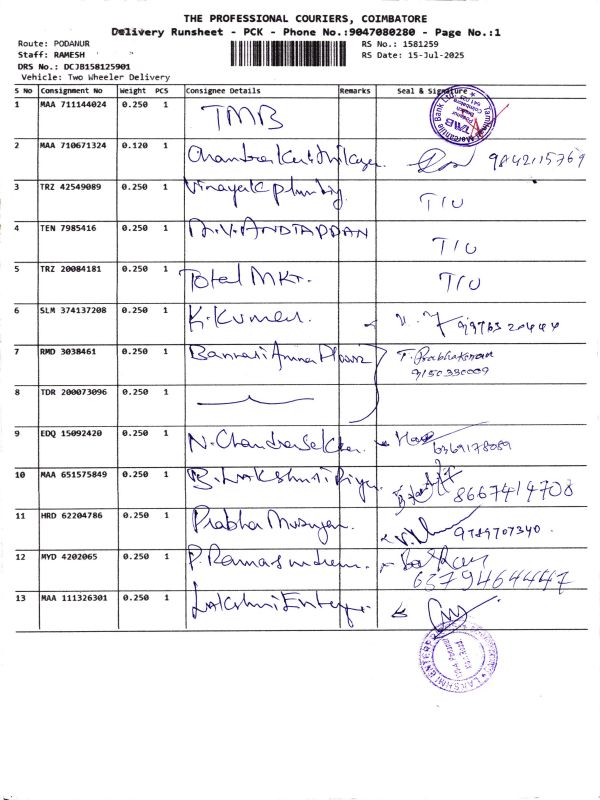 THE PROFESSIONAL COURIERS, COIMBATORE
Delivery Runsheet - PCK - Phone No.:9047080280 - Page No.:1
Route: PODANUR
RS No.: 1581259
Staff: RAMESH
RS Date: 15-Jul-2025
DRS No.: DCJB158125901
Vehicle: Two Wheeler Delivery
S No Consignment No Weight PCS Consignee Details Remarks Seal & Signature
1 MAA 711144024 0.250 1 TMB
2 MAA 710671324 0.120 1 9842115769
3 TRZ 42549089 0.250 1 Vinayak T/U
4 TEN 7985416 0.250 1 A.V. ANDIAPPAN T/U
5 TRZ 20084181 0.250 1 Total MKT. T/U
6 SLM 374137208 0.250 1 K.Kumar.
7 RMD 3038461 0.250 1 Bannari Amman T. Prabhakaran
9150330009
8 TDR 200073096 0.250 1
9 EDQ 15092420 0.250 1 N. Chandrasekhar 6369178089
10 MAA 651575849 0.250 1 B. LAKSHMI Priya 8667414708
11 HRD 62204786 0.250 1 Prabha Murugan. 9789707340.
12 MYD 4202065 0.250 1 P. Ramasundram.
6379464447
13 MAA 111326301 0.250 1 Lakshmi Enterp
LAKSHMI ENTERPRISES